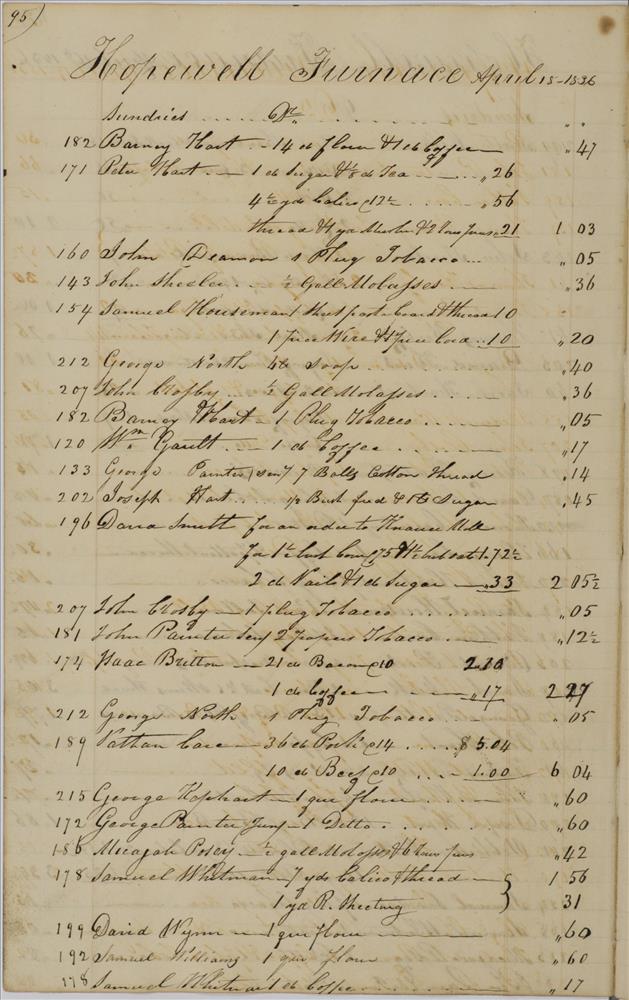 95
Hopewell Furnace April 15-1836
Sundries ..... Dr. ..... " "
182 Barney Hart - 14 lb flour & 1 lb Coffee " 47
171 Peter Hart - 1 lb Sugar & 1/8 lb Tea - " 26
4 1/2 yds Calico @ 12 1/2 .... " 56
thread & 1 yd Muslin & 2 21 1 03
160 John Deamon 1 Plug Tobacco ... " 05
143 John Sheeler .. 1/2 Gall Molasses - " 36
154 Samuel Houseman 1 Sheet paste board & thread 10
1 Wire & 1 .. 10 " 20
212 George North 4 lb Soap .... " 40
207 John Crosby - 1/2 Gall Molasses .... " 36
182 Barney Hart - 1 Plug Tobacco .... " 05
120 Wm. Gault .. - 1 lb Coffee - " 17
133 George Painter senr 7 Balls Cotton thread " 14
202 Joseph Hart ... 1/2 Bush feed & 1 lb Sugar " 45
196 David Smith for an order to Mill
for 1 1/2 bush Corn 75 & 1 1/2 bush oats 1.72 1/2
2 lb Nails & 1 lb Sugar - .33 2 05 1/2
207 John Crosby - 1 plug Tobacco .... " 05
181 John Painter Senr 2 papers Tobacco .. - " 12 1/2
174 Isaac Britton - 21 lb Bacon @ 10 2.10
1 lb Coffee - " 17 2 27
212 George North 1 Plug Tobacco - " 05
189 Nathan Care - 36 lb Pork @ 14 .... $ 5.04
10 lb Beef @ 10 .... 1.00 6 04
215 George Hophart - 1 qur flour .... " 60
172 George Painter Junr - 1 Ditto .... " 60
186 Micajah Posey - 1/2 gall Molasses & 6 " 42
178 Samuel Whitman - 7 yds Calico & thread - 1 56
1 yd R. Sheeting } 31
199 David Wynn - 1 qur flour - " 60
192 Samuel Williams 1 qur flour " 60
178 Samuel Whitman 1 lb Coffee - " 17